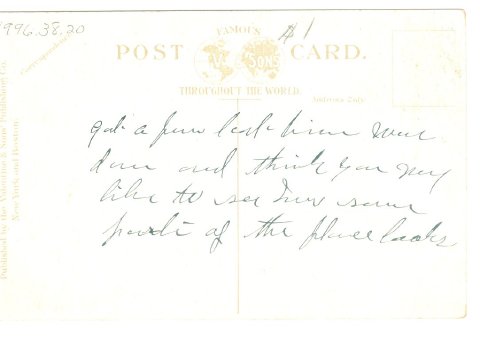 1996.38.20
$1
FAMOUS
POST CARD.
Correspondence
V & SONS
THROUGHOUT THE WORLD.
Address Only
Published by the Valentine & Sons' Publishing Co.
New York and Boston
got a few last time was
down and think you may
like to see how some
parts of the place looks